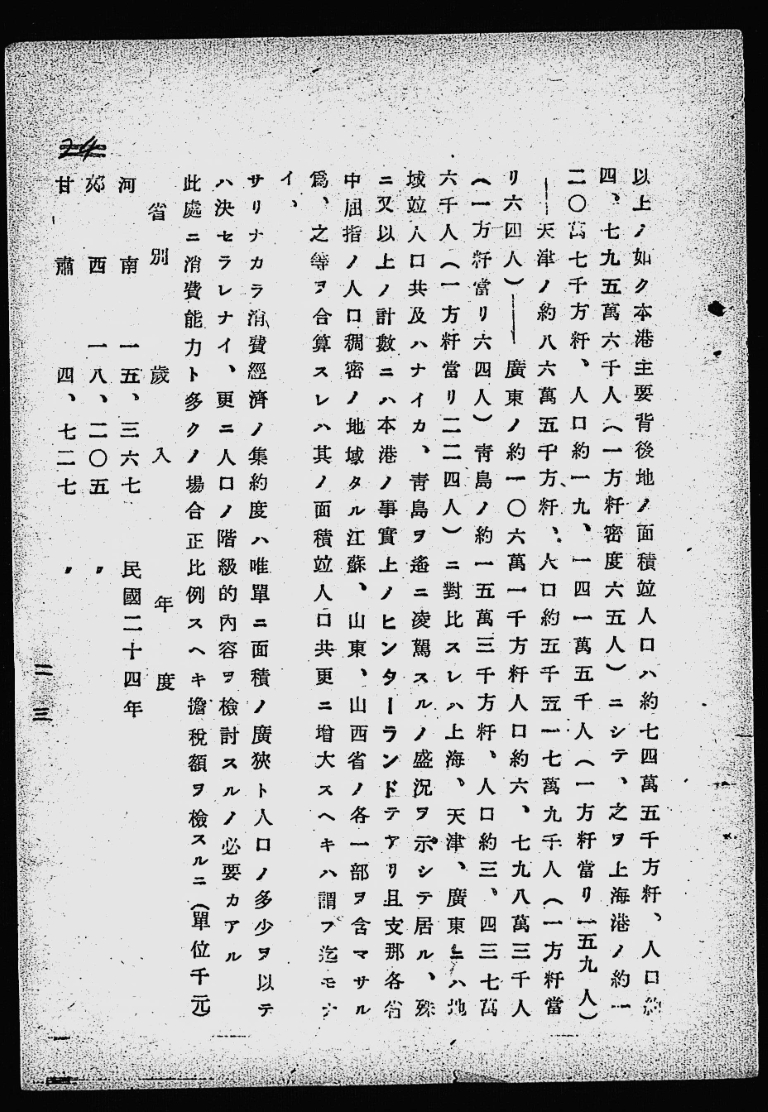 以上ノ如ク本港主要背後地ノ面積竝人口ハ約七四萬五千方粁、人口約
四、七九五萬六千人(一方粁密度六五人)ニシテ、之ヲ上海港ノ約一
二〇萬七千方粁、人口約一九、一四一萬五千人(一方粁當リ一五九人)
──天津ノ約八六萬五千方粁、人口約五千五一七萬九千人(一方粁當
リ六四人)──廣東ノ約一〇六萬一千方粁人口約六、七九八萬三千人
(一方粁當リ六四人)靑島ノ約一五萬三千方粁、人口約三、四三七萬
六千人(一方粁當リ二二四人)ニ對比スレハ上海、天津、廣東ニハ地
域竝人口共及ハナイカ、靑島ヲ遙ニ凌駕スルノ盛況ヲ示シテ居ル、殊
ニ又以上ノ計數ニハ本港ノ事實上ノヒンターランドテアリ且支那各省
中屈指ノ人口稠密ノ地域タル江蘇、山東、山西省ノ各一部ヲ含マサル
爲、之等ヲ合算スレハ其ノ面積竝人口共更ニ增大スヘキハ謂フ迄モナ
イ、
サリナカラ消費經濟ノ集約度ハ唯單ニ面積ノ廣狹ト人口ノ多少ヲ以テ
ハ決セラレナイ、更ニ人口ノ階級的內容ヲ檢討スルノ必要カアル
此處ニ消費能力ト多クノ場合正比例スヘキ擔稅額ヲ檢スルニ(單位千元)
省別 歲入 年度
河南 一五、三六七 民國二十四年
西 一八、二〇五 〃
甘肅 四、七二七 〃
二三
24